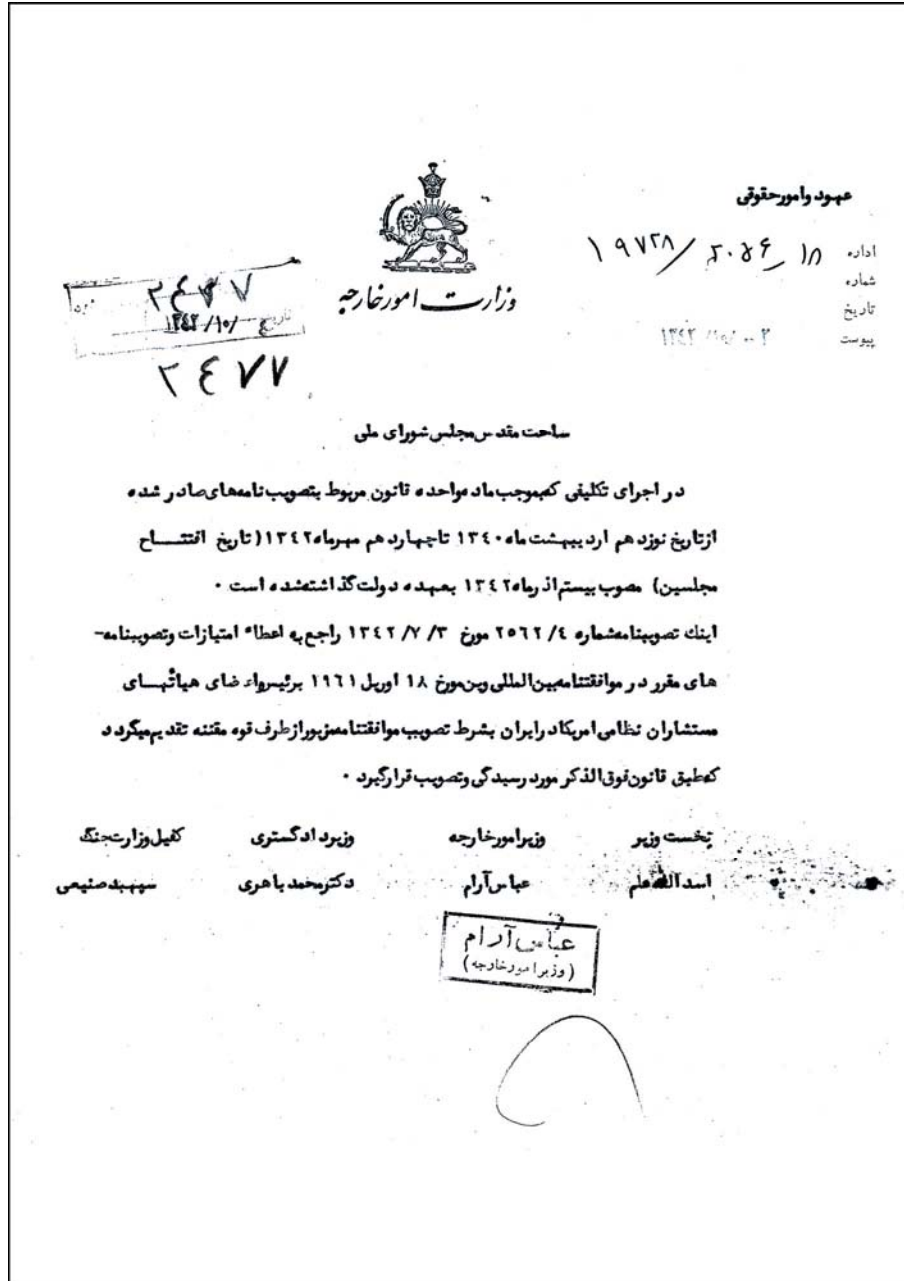 عهود وامورحقوقی
اداره ۱۸
شماره
تاریخ
پیوست
وزارت امورخارجه
۲۴۷۷
تاریخ /۱۳۴۲/۱۰
۲۴۷۷
ساحت مقدس مجلس شورای ملی
در اجرای تکلیفی که بموجب ماده واحده قانون مربوط بتصویب نامه های صادر شده
از تاریخ نوزدهم اردیبهشت ماه ۱۳۴۰ تا چهاردهم مهرماه ۱۳۴۲ (تاریخ افتتاح
مجلسین) مصوب بیستم آذرماه ۱۳۴۲ بعهده دولت گذاشته شده است .
اینك تصویبنامه شماره ۲۵۶۲/۴ مورخ ۱۳۴۲/۷/۳ راجع به اعطاء امتیازات وتصویبنامه-
های مقرر در موافقتنامه بین المللی وین مورخ ۱۸ اوریل ۱۹۶۱ برئیس واعضای هیأتهای
مستشاران نظامی امریکا در ایران بشرط تصویب موافقتنامه مزبور از طرف قوه مقننه تقدیم میگردد
که طبق قانون فوق الذکر مورد رسیدگی وتصویب قرار گیرد .
نخست وزیر وزیر امورخارجه وزیر دادگستری کفیل وزارت جنگ
اسدالله علم عباس آرام دکتر محمد باهری سپهبد صنیعی
عباس آرام
(وزیر امورخارجه)